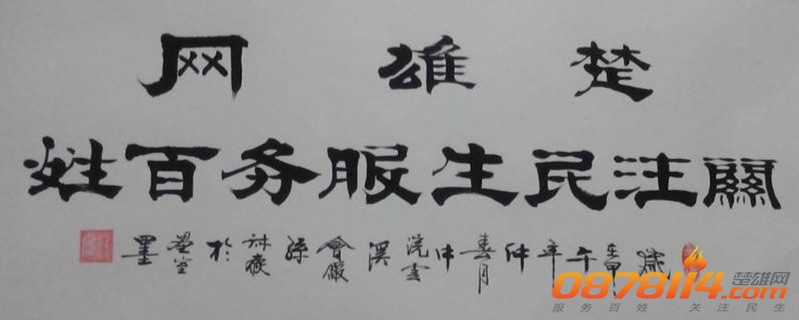 楚雄网
關注民生服务百姓
歲在甲午年仲春月中浣
於墨
楚雄网
0878114.com
服务百姓 关注民生